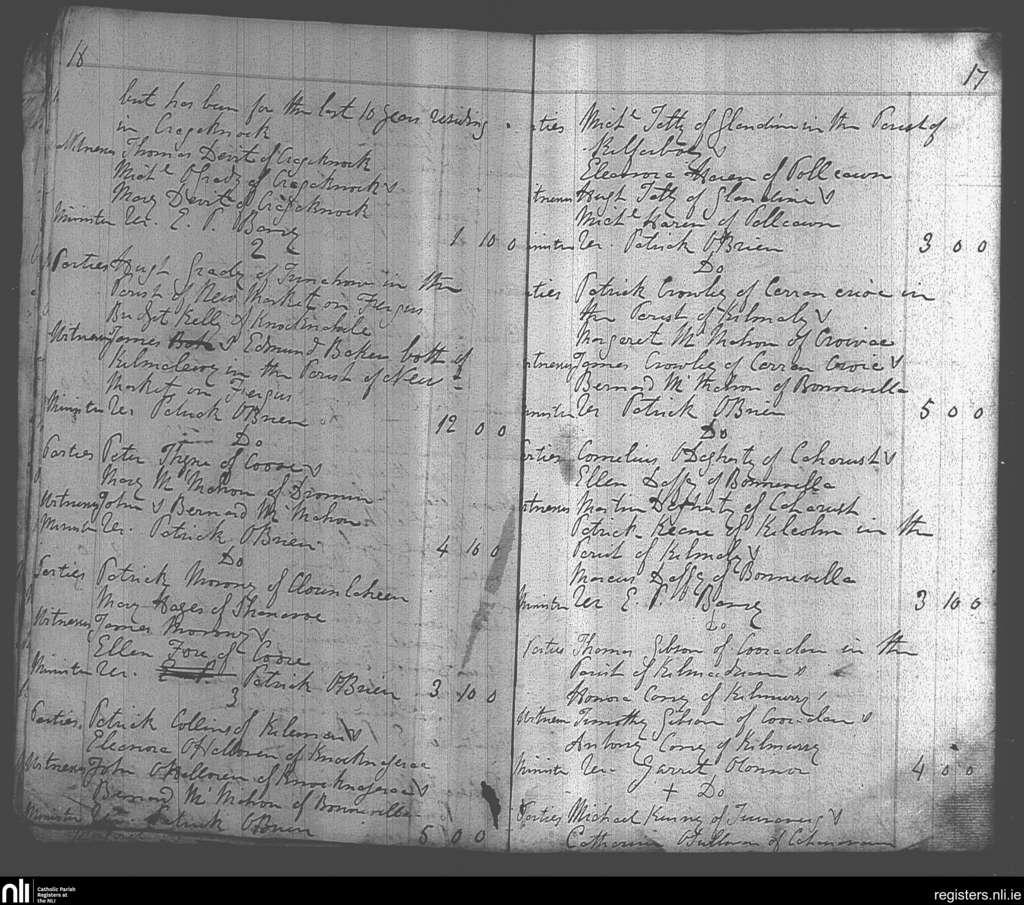 18
but has been for the last 10 years residing
in Cragaknock
Witnesses Thomas Devit of Cragaknock
Mich^l O Grady of Cragaknock &
Mary Devit of Cragaknock
Minister Ur. E. P. Barry 1 10 0
2
Parties Hugh Grady of in the
Parish of New Market on Fergus
Bridget Kelly of
Witnesses James & Edmund Baker both of
in the Parish of New =
Market on Fergus
Minister Ur Patrick O'Brien 12 0 0
Do
Parties Peter Thyne of Coore &
Mary Mc Mahon of Dromin
Witnesses John & Bernard Mc Mahon
Minister Ur. Patrick O'Brien 4 10 0
Do
Parties Patrick Morony of Clounlaheen
Mary Hayes of Shanavoe
Witnesses James Morony &
Ellen of Coore
Minister Ur. E. P. Patrick O'Brien 3 10 0
3
Parties Patrick Collins of &
Eleanora O'Halloren of Knocknageraa
Witnesses John O'Halloren of Knocknageraa &
Bernard Mc Mahon of Bonnevilla
Minister Ur. Patrick O'Brien 5 0 0
17
Mich^l Tatty of Glandine in the Parish of
Kilfarboy &
Eleanora Haren of Pollcawn
Hugh Tatty of Glandine &
Mich^l Haren of Pollcawn
Ur. Patrick O'Brien 3 0 0
Do
Patrick Crowley of in
the Parish of Kilmaly &
Margaret Mc Mahon of
James Crowley of &
Bernard Mc Mahon of Bonnevilla
Minister Ur Patrick O'Brien 5 0 0
Do
Parties Cornelius O'Degherty of Caharush &
Ellen Daffy of Bonnevilla
Witnesses Martin Degherty of Caharush
Patrick Keane of Kilcolm in the
Parish of Kilmaly &
Marcus Daffy of Bonnevilla
Minister Ur E. P. Barry 3 10 0
Do
Parties Thomas Gibson of Cooraclan in the
Parish of Kilmacduane &
Honora Conry of Kilmurry
Witness Timothy Gibson of Cooraclan &
Antony Conry of Kilmurry
Minister Ur. Garret O'Connor 4 0 0
+ Do
Parties Michael Kinny of &
Catherine O'Sullivan of
nli
Catholic Parish
Registers at
the NLI
registers.nli.ie